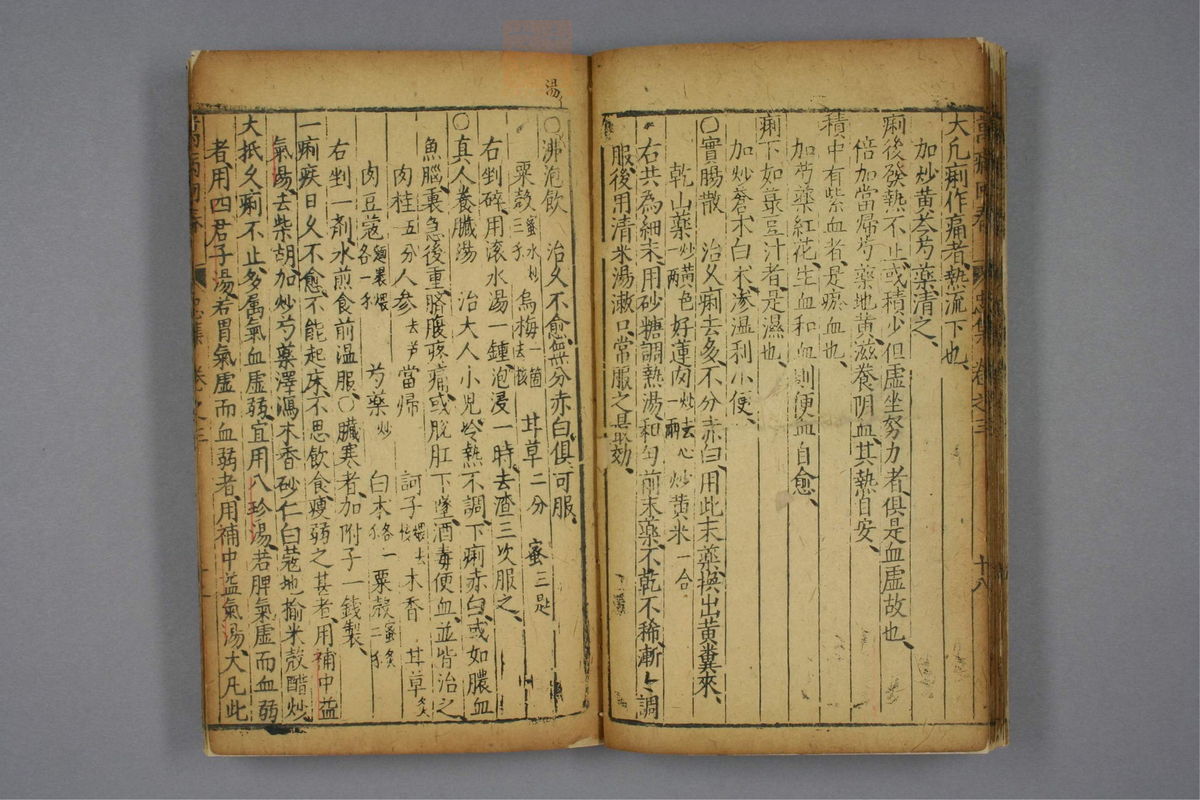 大凡痢作痛者熱流下也
加炒黃芩芍藥清之
痢後發熱不止或積少但虛坐努力者俱是血虛故也
倍加當歸芍藥地黃滋養陰血其熱自安
積中有紫血者是瘀血也
加芍藥紅花生血和血則便血自愈
痢下如荳豆汁者是濕也
加炒蒼朮白朮滲溫利小便
〇實腸散 治久痢去多不分赤白用此末藥挨出黃糞來
乾山藥炒黃色一两 好蓮肉炒去心一兩 炒黃米一合
右共為細末用砂糖調熱湯和勻前末藥不乾不稀漸々調
服後用清米湯漱口常服之最効
萬病回春 忠集 卷之三 十八
湯
〇沸泡飲 治久不愈無分赤白俱可服
粟殼蜜水炒三 烏梅一箇去核 甘草二分 蜜三匙
右剉碎用滾水湯一鍾泡浸一時去渣三次服之
〇真人養臟湯 治大人小児冷熱不調下痢赤白或如膿血
魚腦裏急後重臍腹疼痛或脫肛下墜酒毒便血並皆治之
肉桂五分 人參去芦 當歸 訶子煨去核 木香 甘草炙
肉豆蔻麵裹煨各一 芍藥炒 白朮各一 粟殼蜜炙二
右剉一剤水煎食前温服〇臟寒者加附子一錢製
一痢疾日久不愈不能起床不思飲食瘦弱之甚者用補中益
氣湯去柴胡加炒芍藥澤瀉木香砂仁白蔻地榆米殼醋炒
大抵久痢不止多属氣血虛弱宜用八珍湯若脾氣虛而血弱
者用四君子湯若胃氣虛而血弱者用補中益氣湯大凡此
萬病回春 忠集 卷之三